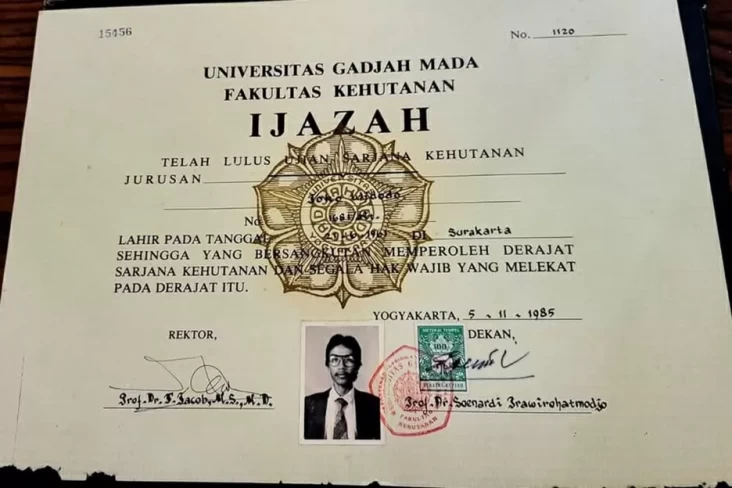 15456
No. 1120
UNIVERSITAS GADJAH MADA
FAKULTAS KEHUTANAN
IJAZAH
TELAH LULUS UJIAN SARJANA KEHUTANAN
JURUSAN
Joko Widodo
No.
LAHIR PADA TANGGAL DI Surakarta
SEHINGGA YANG BERSANGKUTAN MEMPEROLEH DERAJAT
SARJANA KEHUTANAN DAN SEGALA HAK WAJIB YANG MELEKAT
PADA DERAJAT ITU.
YOGYAKARTA, 5 - 11 - 1985
REKTOR,
DEKAN,
METERAI TEMPEL
100
FAKULTAS
KEHUTANAN
Prof. Dr. T. Jacob, M.S., M.D.
Prof. Dr. Soenardi Prawirohatmodjo